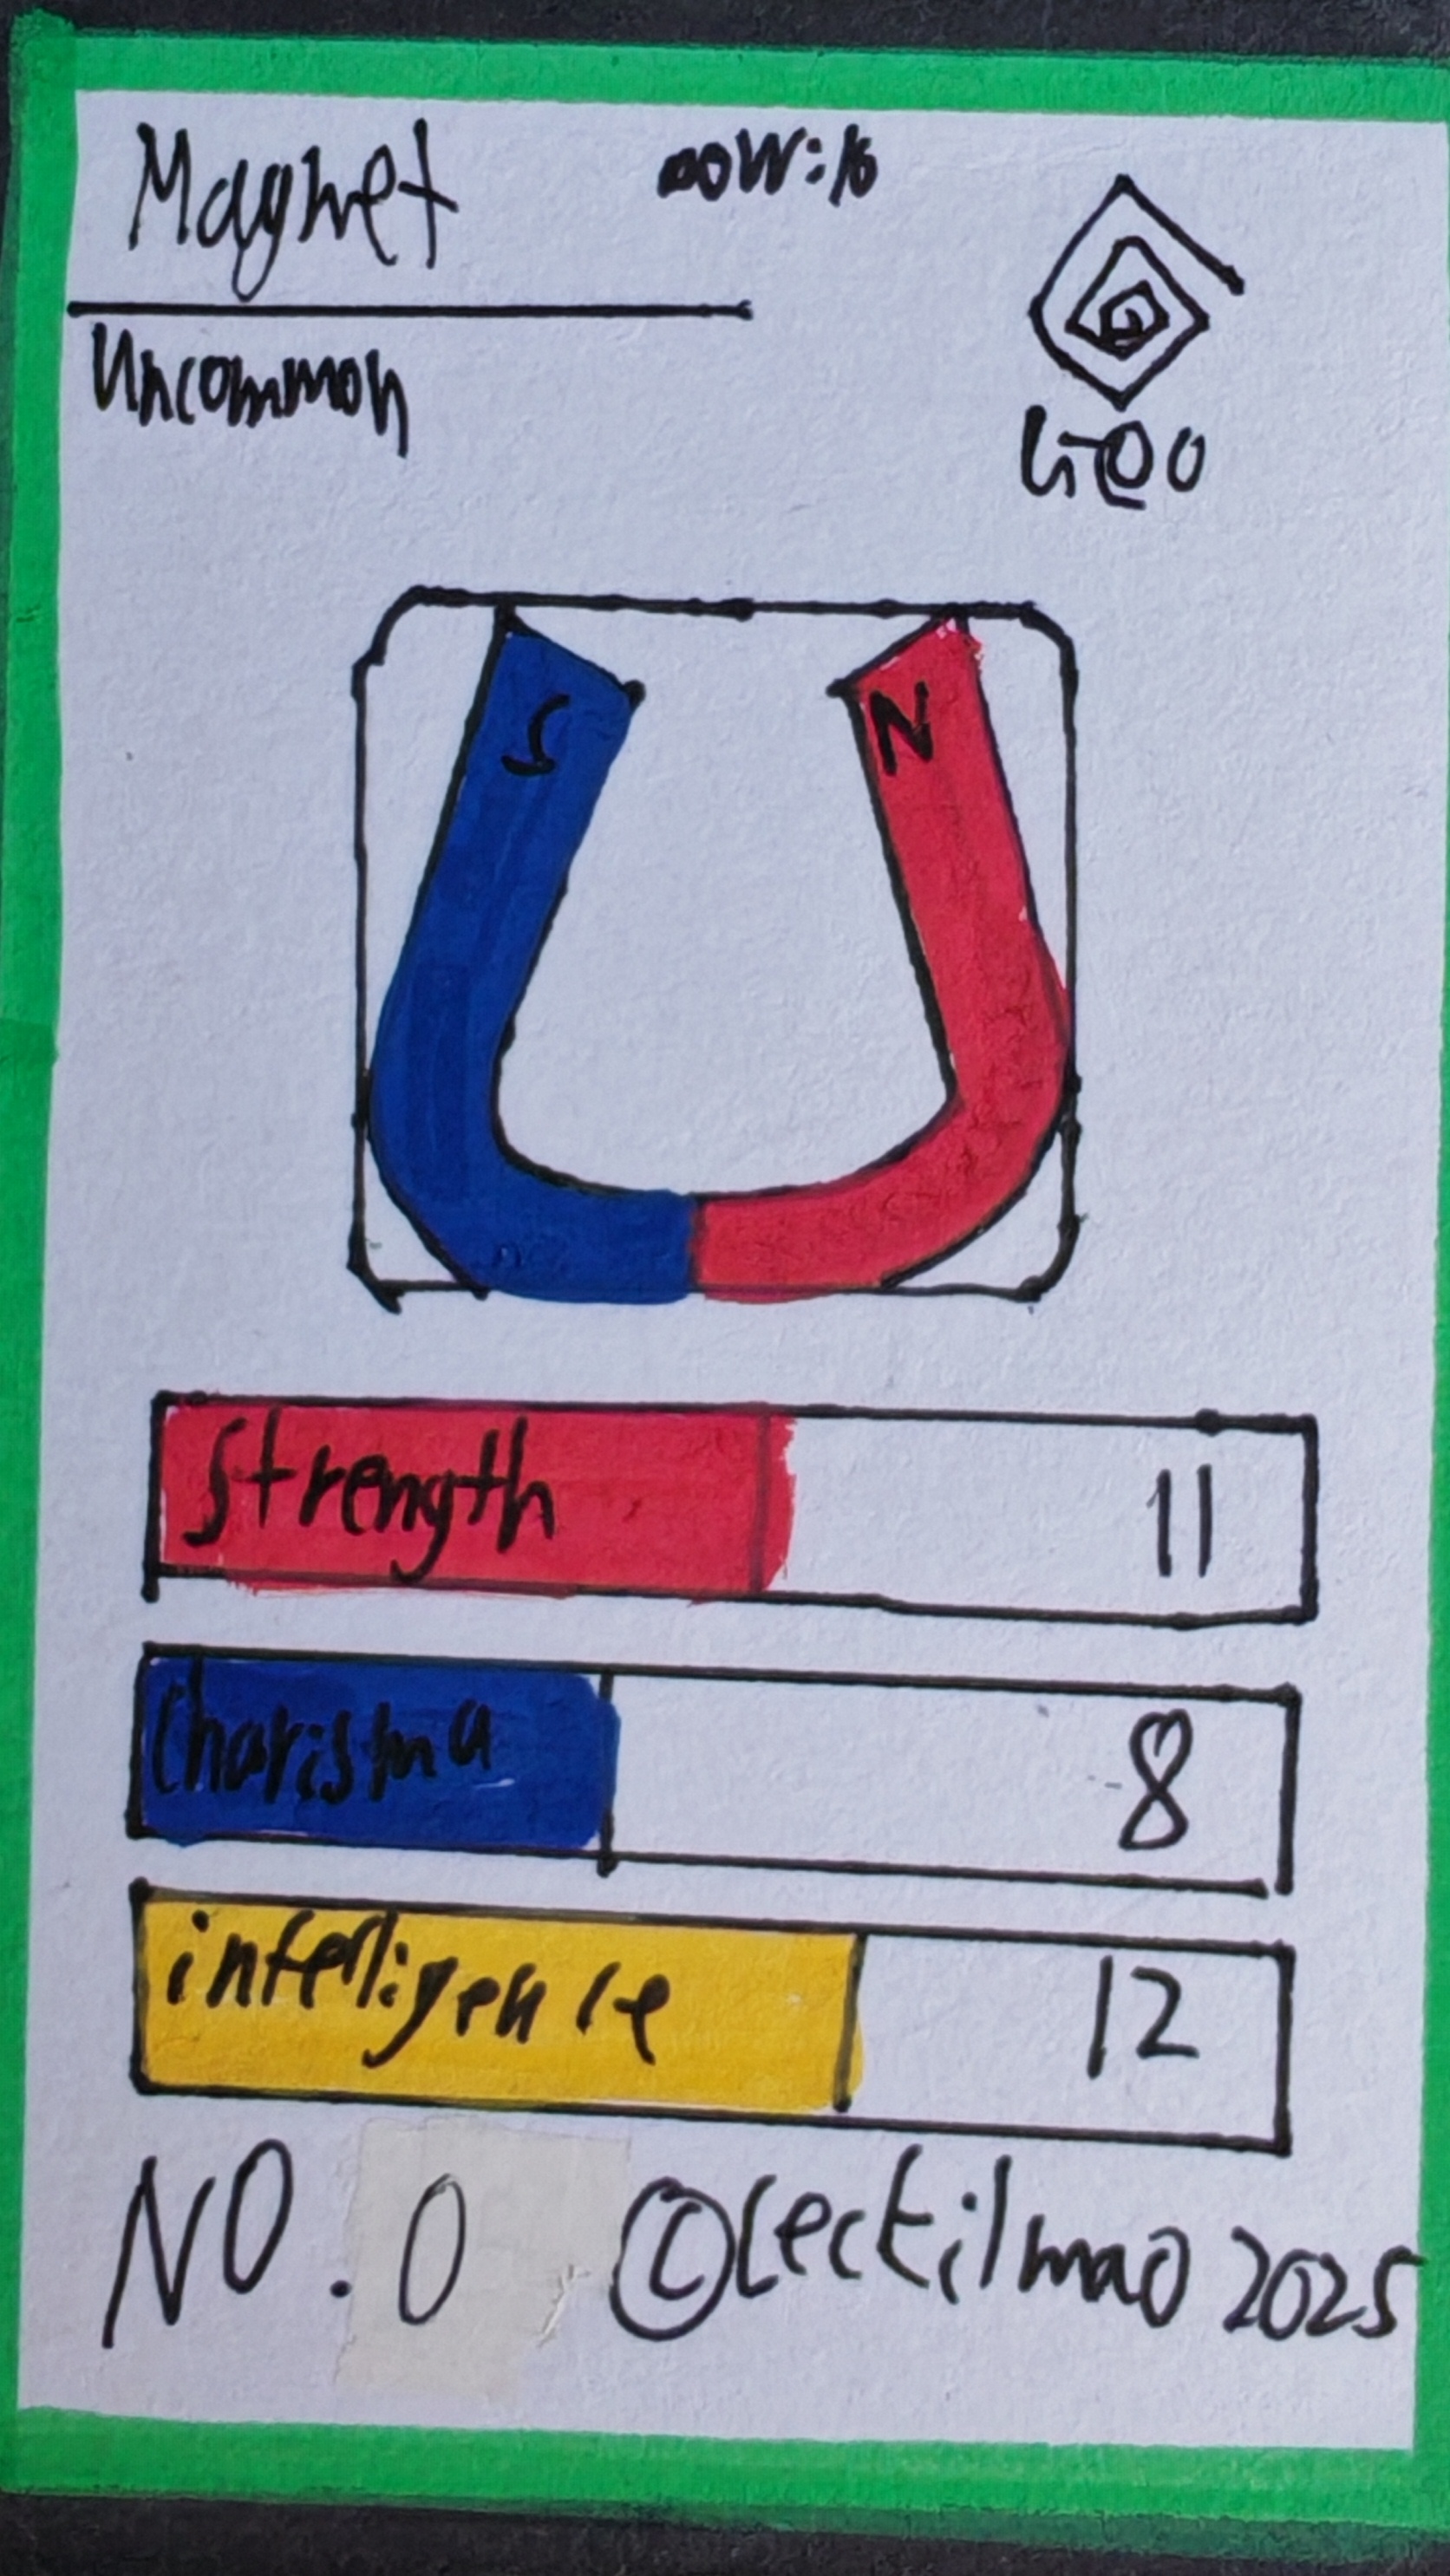 Magnet
Uncommon
S N
Strength 11
Charisma 8
intelligence 12
NO. 0 © Cectilmao 2025